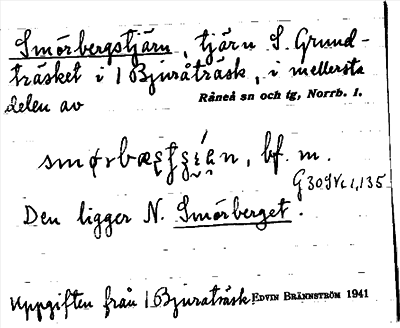 Smörbergstjärn, tjärn S. Grund-
träsket i 1 Bjuråträsk, i mellersta
delen av
Råneå sn och tg, Norrb. l.
bf. m.
Den ligger N. Smörberget.
Uppgiften från 1 Bjuråträsk EDVIN BRÄNNSTRÖM 1941